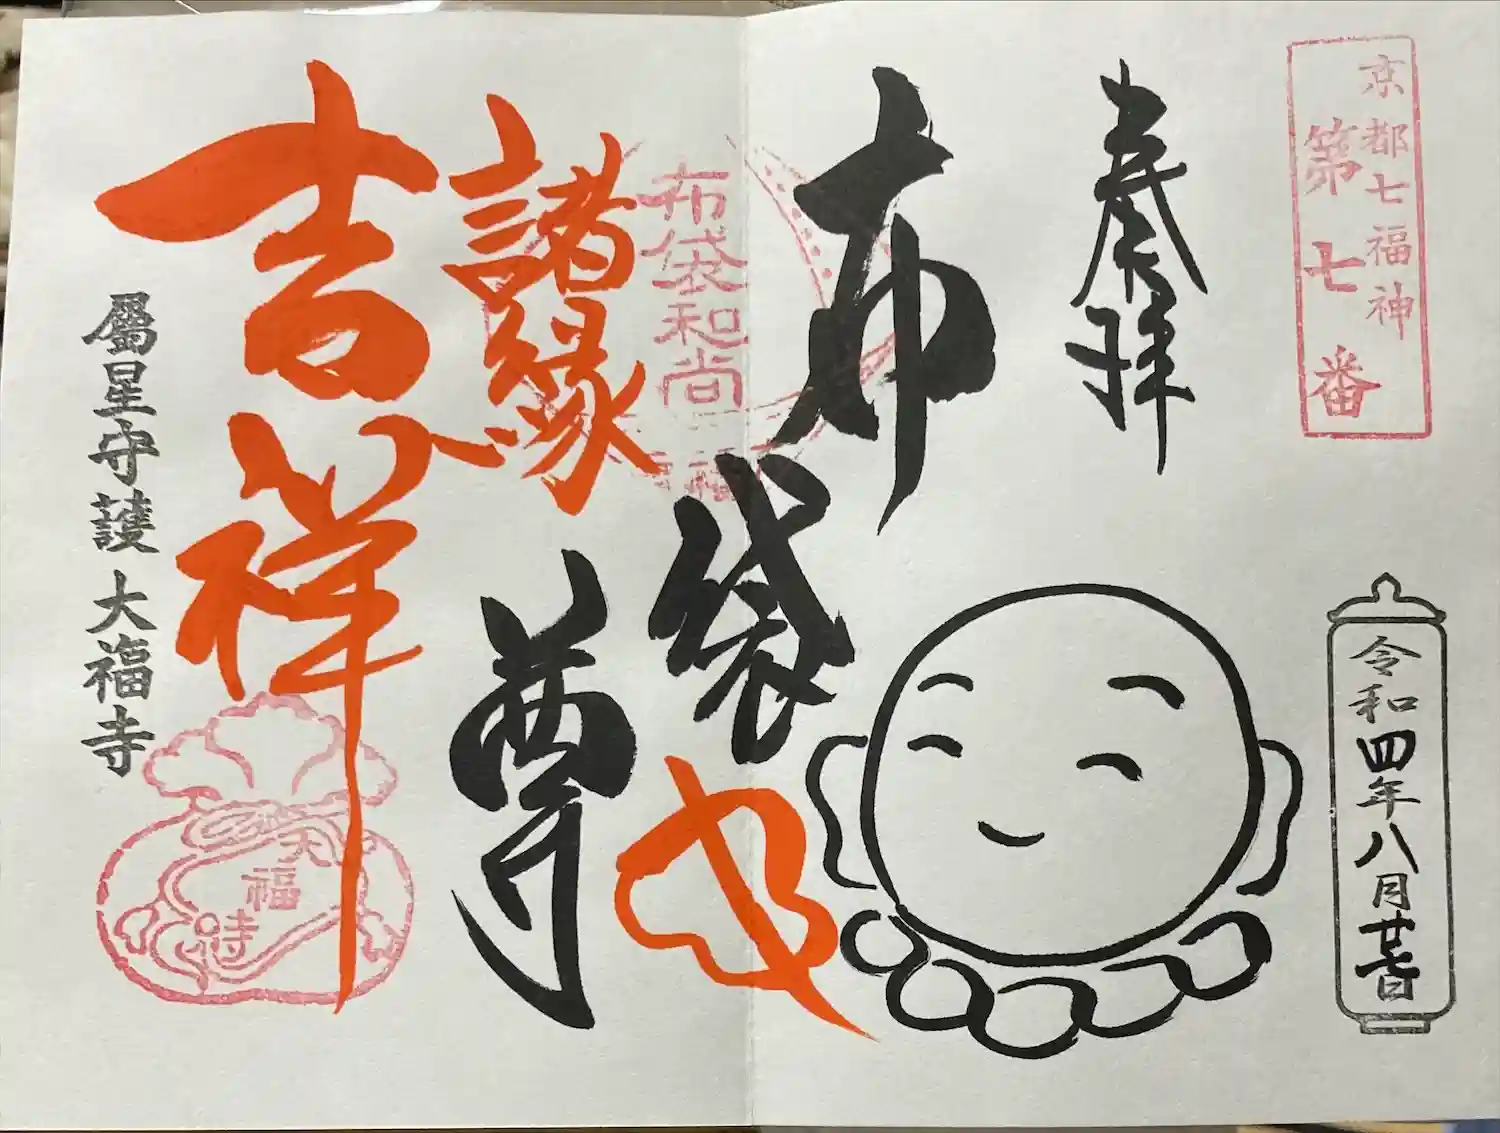 京都七福神
第七番
奉拝
令和四年八月廿七日
布袋尊
布袋和尚
福
諸縁
吉祥
屬星守護 大福寺
大福寺